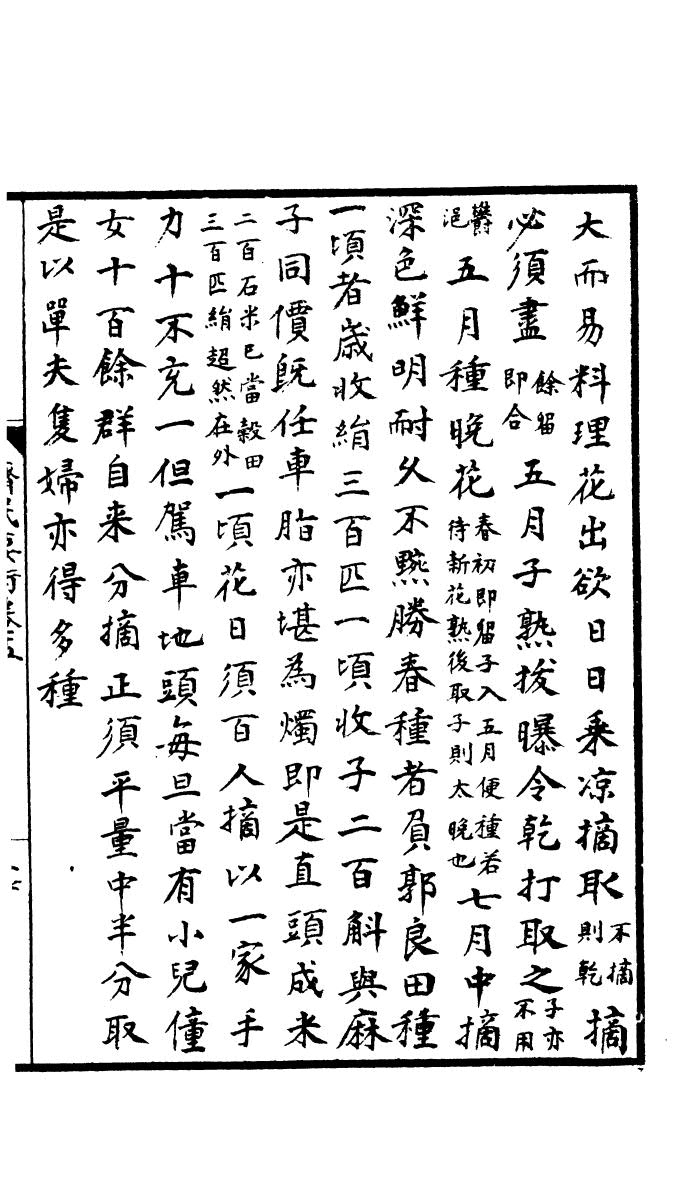 大而易料理花出欲日日乗凉摘取不摘則乾摘
必須盡餘留即合五月子熟拔曝令乾打取之子亦不用
欝浥五月種晚花春初即留子入五月便種若待新花熟後取子則太晚也七月中摘
深色鮮明耐久不黦勝春種者負郭良田種
一頃者歲收絹三百匹一頃收子二百斛與麻
子同價既任車脂亦堪為燭即是直頭成米
二百石米已當穀田三百匹絹超然在外一頃花日須百人摘以一家手
力十不充一但駕車地頭每旦當有小兒僮
女十百餘群自来分摘正須平量中半分取
是以單夫隻婦亦得多種
齊民要術卷五